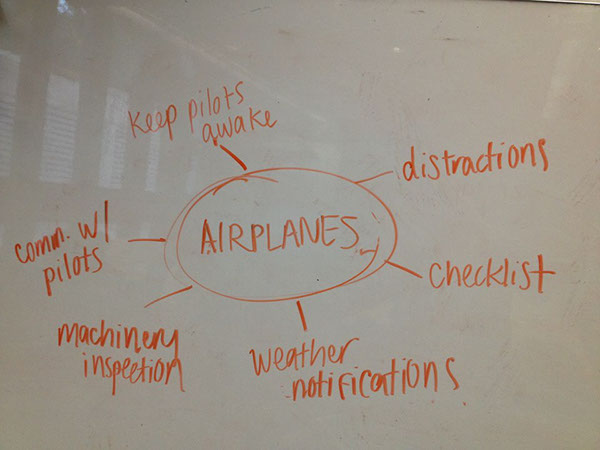 Keep pilots
awake
distractions
AIRPLANES
comm. w/
pilots
checklist
machinery
inspection
weather
notifications